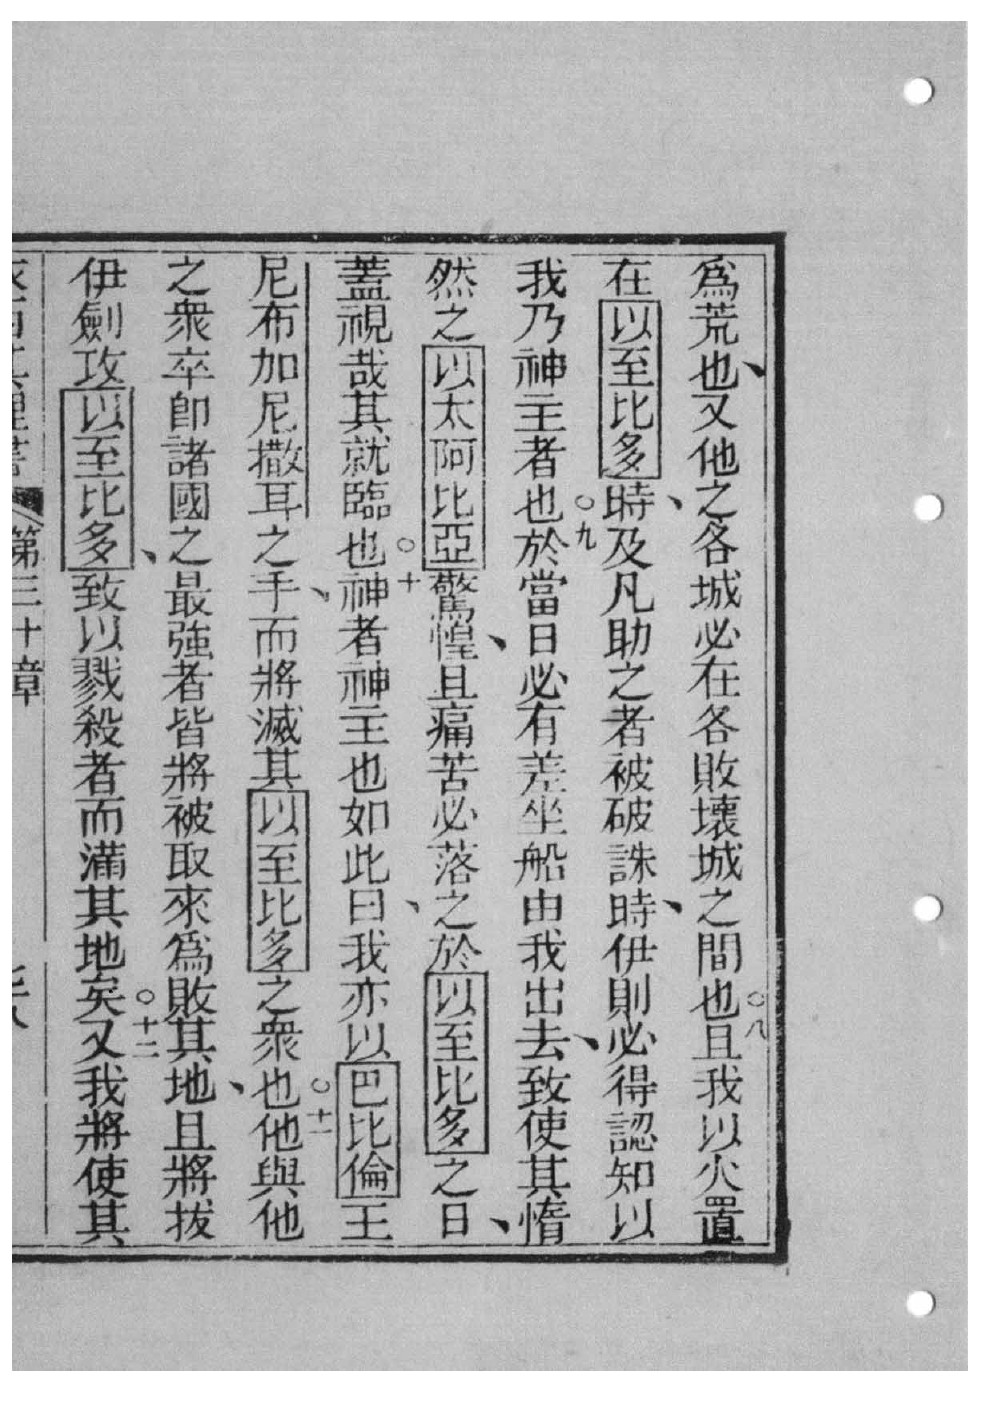 爲荒也、又他之各城必在各敗壞城之間也○八且我以火置
在以至比多時、及凡助之者被破誅時、伊則必得認知以
我乃神主者也○九於當日必有差坐船由我出去、致使其惰
然之以太阿比亞驚惶、且痛苦必落之於以至比多之日、
蓋視哉其就臨也○十神者神主也如此曰、我亦以巴比倫王
尼布加尼撒耳之手、而將滅其以至比多之衆也○十一他與他
之衆卒卽諸國之最強者皆將被取來爲敗其地、且將拔
伊劍攻以至比多、致以戮殺者而滿其地矣○十二又我將使其
第三十章